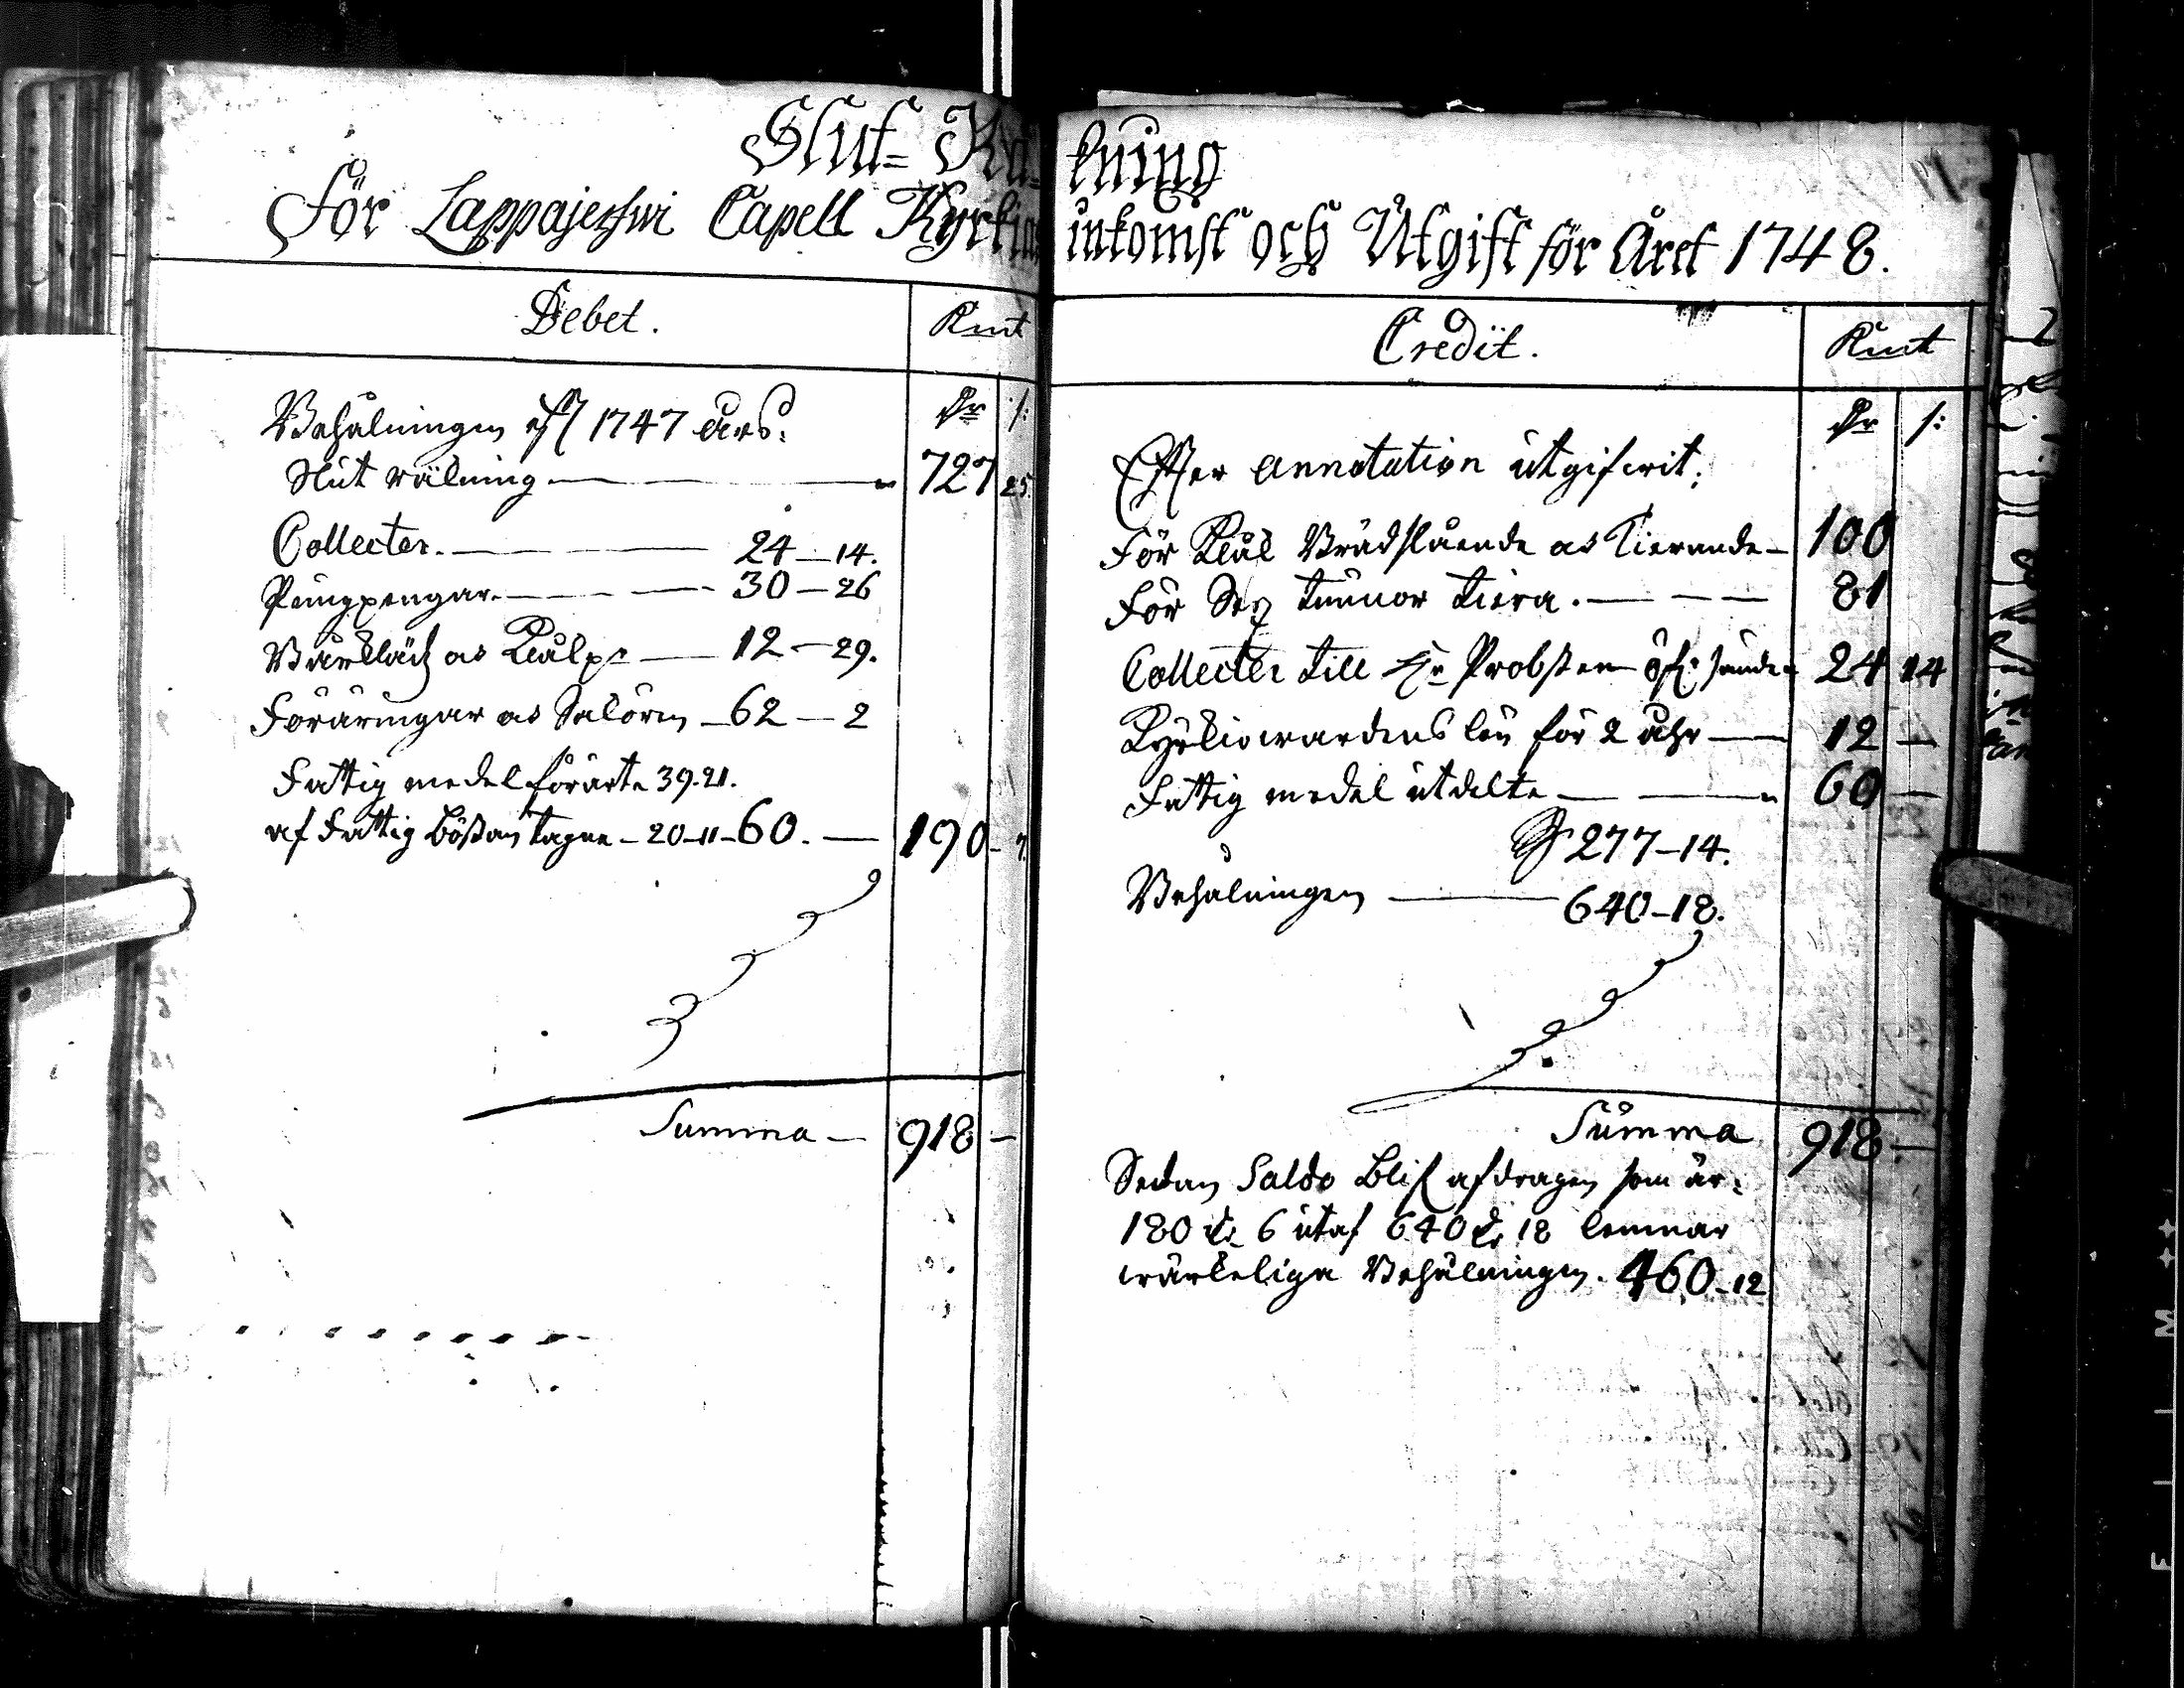 Slut= Räkning
För Lappajerfwi Capell Kyrkias inkomst och Utgift för Året 1748.
Debet. Kmt
dr s:
Behålningen eft 1747 års:
Slut räkning 727 25
Collecter. 24-14.
Pungpengar. 30-26
12-29.
Föräringar 62-2
Fattig medel förärte 39.21.
af Fattig Bössan tagne-20-11-60. 190-7.
Summa 918 -
Credit. Kmt
dr s:
Effter annotation utgifwit:
För 100
För Sex tunnor tiära. 81
Collecter till Hr Probsten öfsände 24 14
Kyrkiowärdens lön för 2 åhr 12 -
Fattig medel utdelte 60 -
277-14.
Behålningen 640-18.
Summa 918 -
Sedan Saldo blif afdragen som är:
180 dr 6 utaf 640 dr 18 lemnar
wärkeliga Behålningen. 460-12